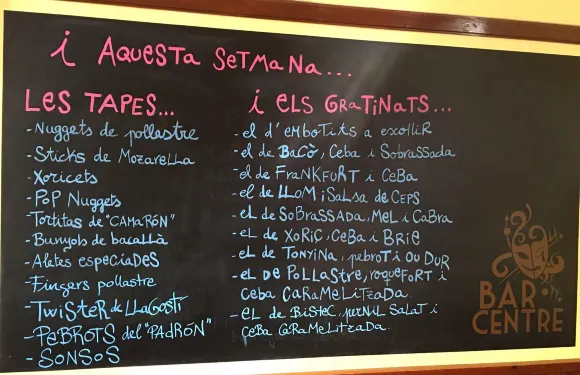 i Aquesta setmana...
Les Tapes...
- Nuggets de pollastre
- Sticks de Mozarella
- Xoricets
- Pop Nuggets
- Tortitas de "CAMARÓN"
- Bunyols de bacallà
- Aletes especiades
- Fingers pollastre
- Twister de llagosti
- Pebrots del "Padrón"
- Sonsos
i els Gratinats...
- el d'embotits a escollir
- el de Bacò, Ceba i Sobrassada
- el de Frankfurt i Ceba
- el de llom i salsa de ceps
- el de Sobrassada, mel i Cabra
- el de Xoriç, Ceba i Brie
- el de Tonyina, pebrot i ou dur
- el de Pollastre, roquefort i
ceba caramelitzada.
- el de Bistec, pernil salat i
ceba caramelitzada.
BAR
CENTRE